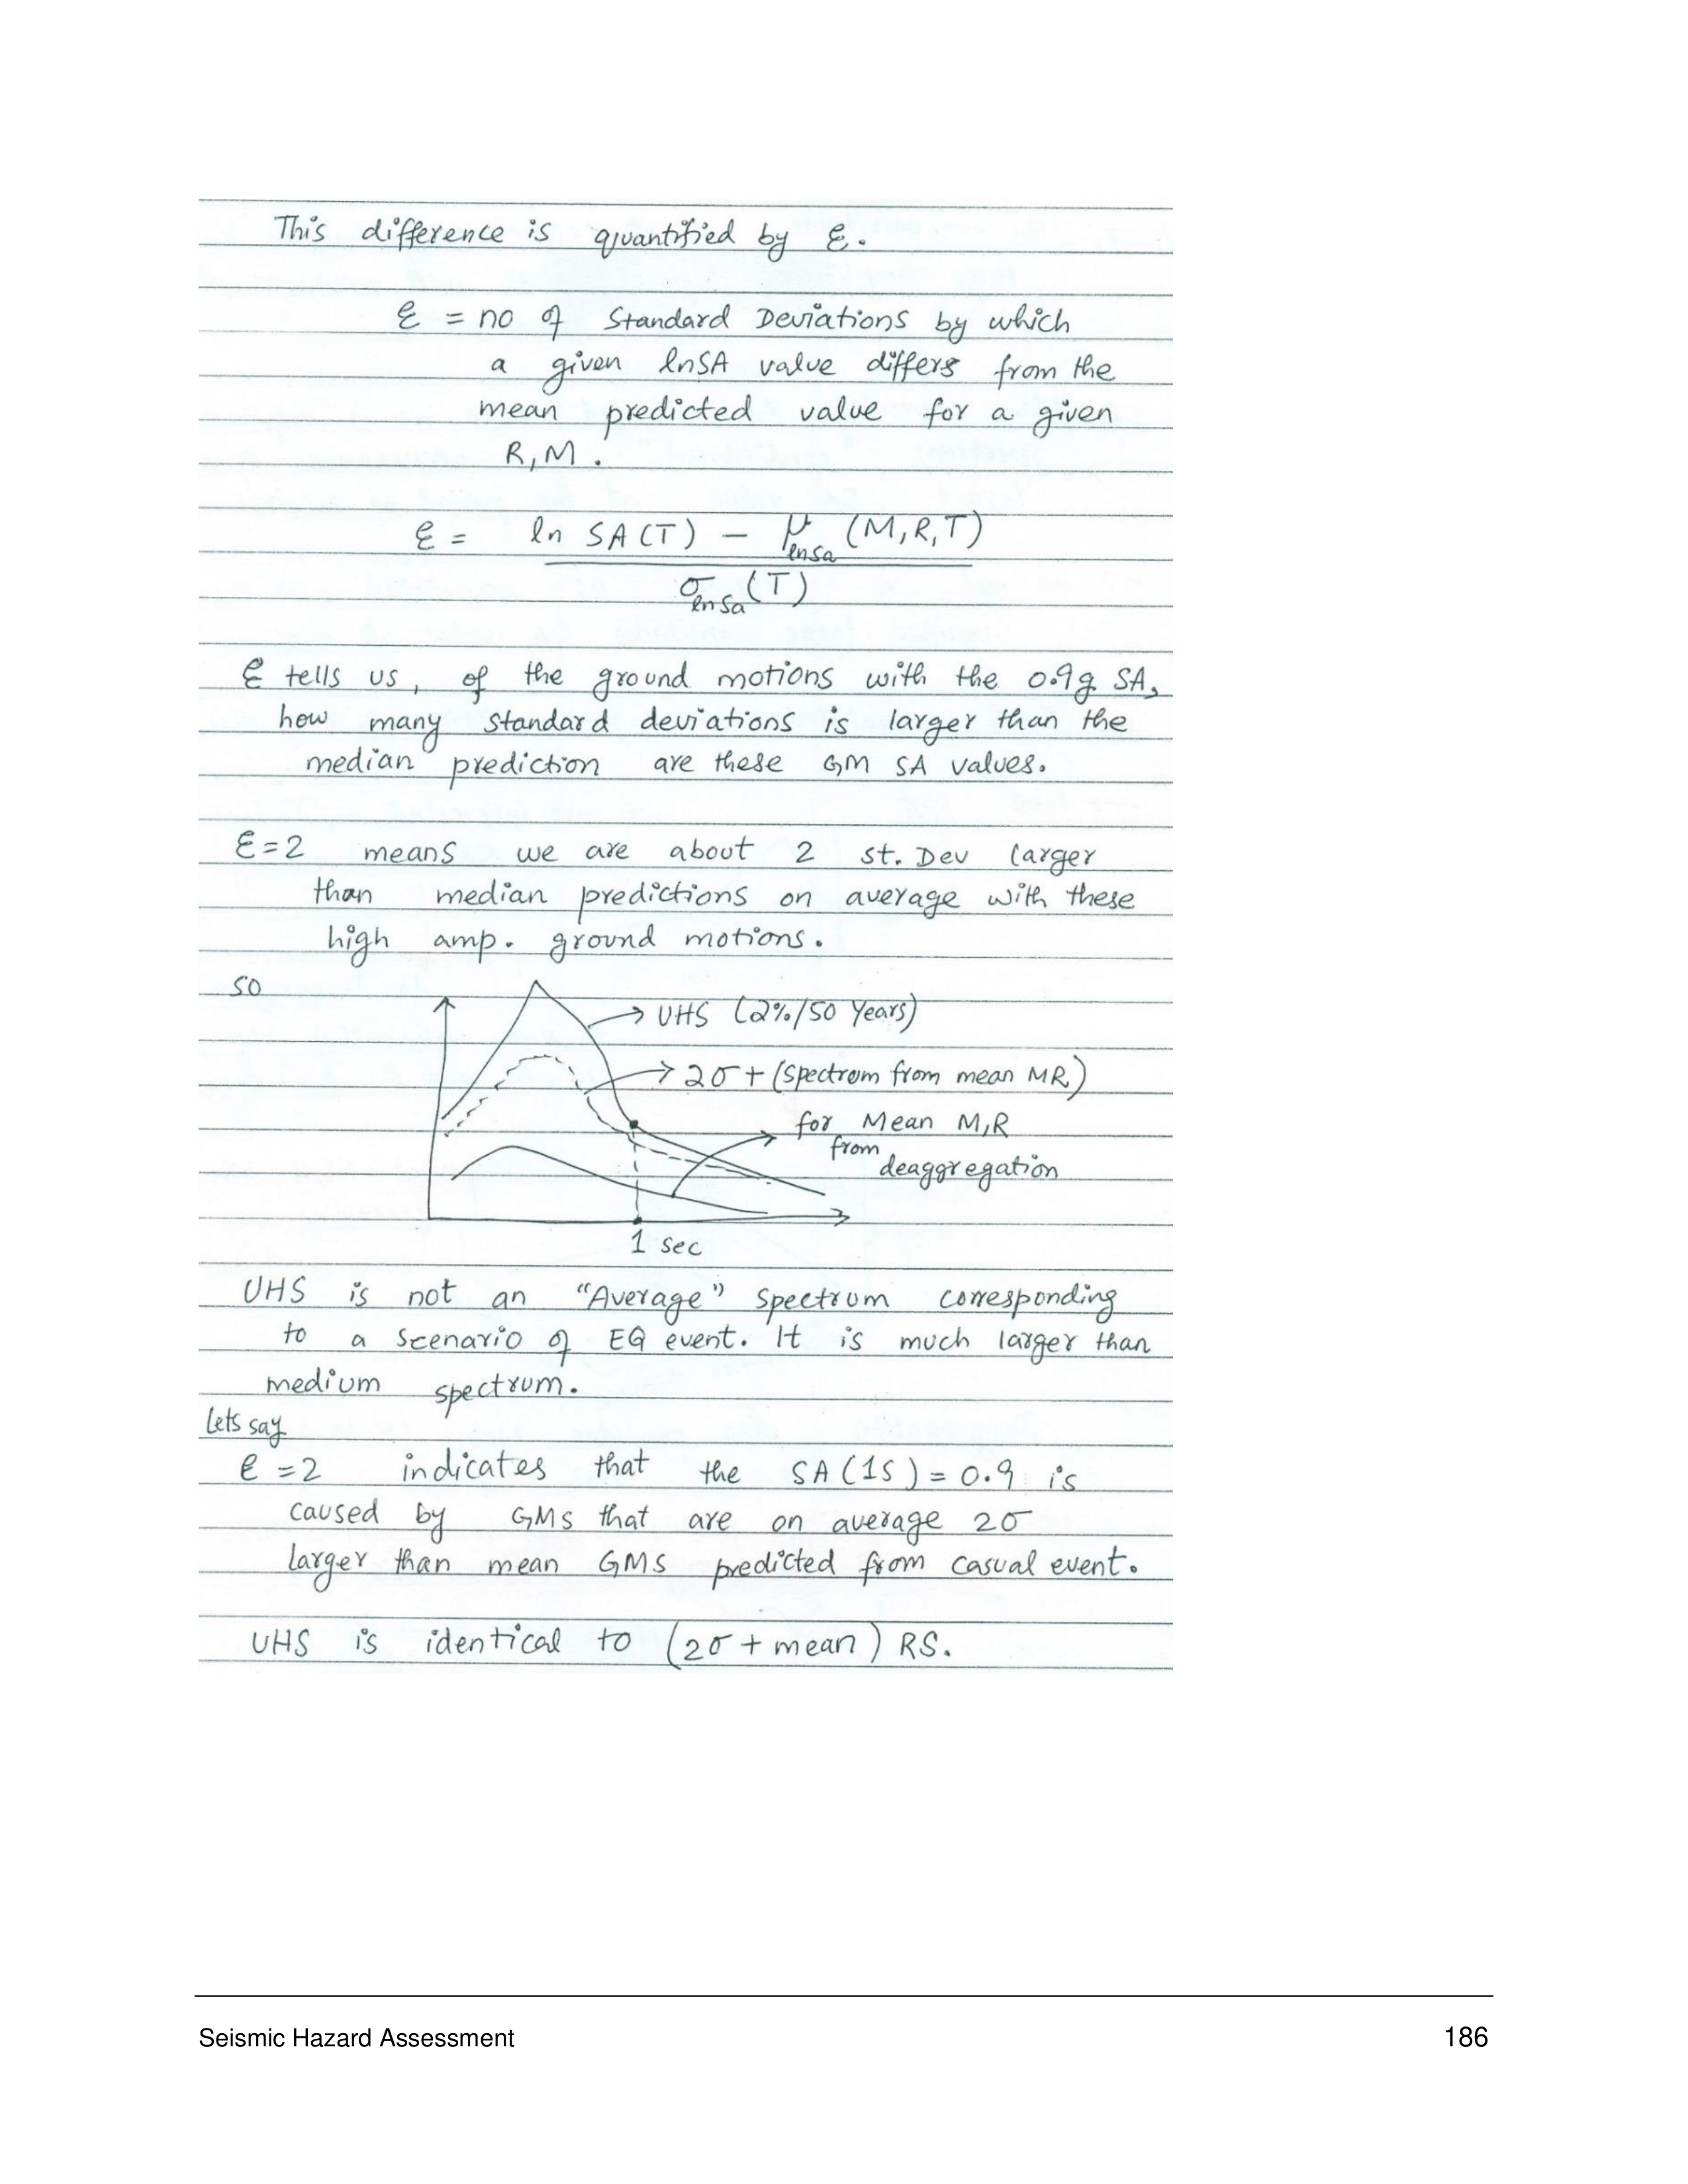 This difference is quantified by ε.
ε = no of Standard Deviations by which
a given lnSA value differs from the
mean predicted value for a given
R, M.
ε = ln SA(T) − μlnSa (M,R,T)
σlnSa (T)
ε tells us, of the ground motions with the 0.9g SA,
how many standard deviations is larger than the
median prediction are these GM SA values.
ε=2 means we are about 2 st. Dev larger
than median predictions on average with these
high amp. ground motions.
so
UHS (2%/50 Years)
2σ + (spectrom from mean MR)
for Mean M,R
from
deaggregation
1 sec
UHS is not an "Average" spectrum corresponding
to a scenario of EQ event. It is much larger than
medium spectrum.
Lets say
ε = 2 indicates that the SA(1S) = 0.9 is
caused by GMs that are on average 2σ
larger than mean GMS predicted from casual event.
UHS is identical to (2σ + mean) RS.
Seismic Hazard Assessment 186